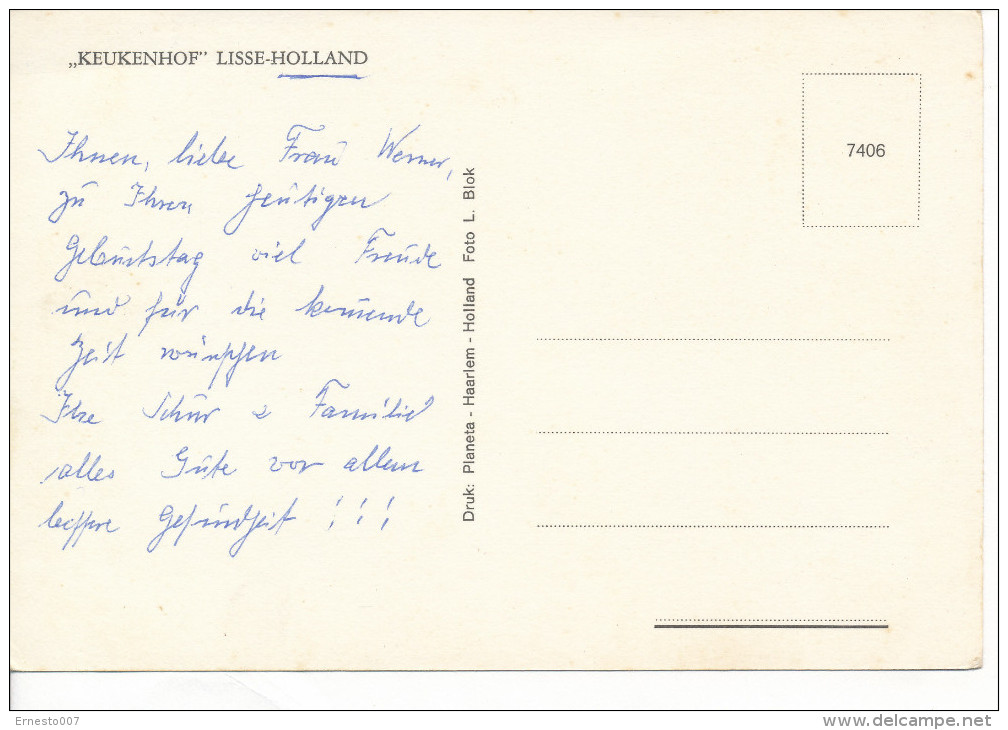 „KEUKENHOF” LISSE-HOLLAND
7406
Ihnen, liebe Frau Werner,
zu Ihren heutigen
Geburtstag viel Freude
und für die kommende
Zeit wünschen
Ihre Schür & Familie
alles Gute vor allem
bessere Gesundheit !!!
Druk: Planeta - Haarlem - Holland Foto L. Blok
Ernesto007
www.delcampe.net